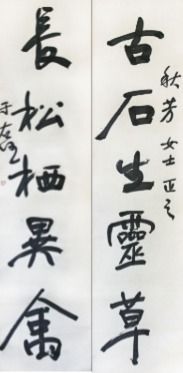 古石生靈草
秋芳女士正之
長松栖異禽
于右任